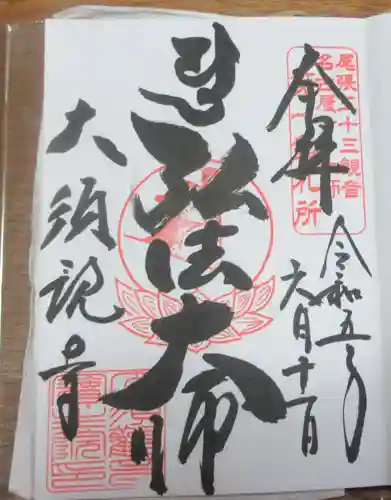 奉拝
令和五年
六月十一日
弘法大師
大須観音
尾張三十三観音
名古屋
札所